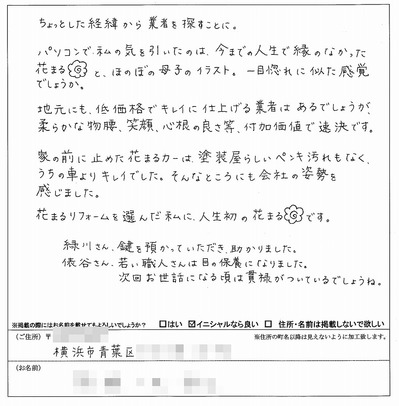 ちょっとした経緯から業者を探すことに。
パソコンで、私の気を引いたのは、今までの人生で縁のなかった
花まると、ほのぼの母子のイラスト。一目惚れに似た感覚
でしょうか。
地元にも、低価格でキレイに仕上げる業者はあるでしょうが、
柔らかな物腰、笑顔、心根の良さ等、付加価値で速決です。
家の前に止めた花まるカーは、塗装屋らしいペンキ汚れもなく、
うちの車よりキレイでした。そんなところにも会社の姿勢を
感じました。
花まるリフォームを選んだ私に、人生初の花まるです。
緑川さん、鍵を預かっていただき、助かりました。
俵谷さん、若い職人さんは目の保養になりました。
次回お世話になる頃は貫禄がついているでしょうね。
※掲載の際にはお名前を載せてもよろしいでしょうか? □はい ☑イニシャルなら良い □ 住所・名前は掲載しないで欲しい
(ご住所) 〒 ※住所の町名以降は見えないように加工致します。
横浜市青葉区
(お名前)